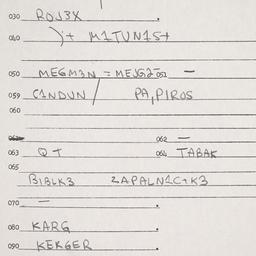 030 ROJ3X
040 )+ M1TUN1S+
050 MEGM3N = MEJG2= 051 —
059 C1NDUN / PA,PIROS
060
062 —
063 Q T 064 TABAK
065
BIBLK3 2APALN1C+K3
070 —
080 KARG
090 KEKGER